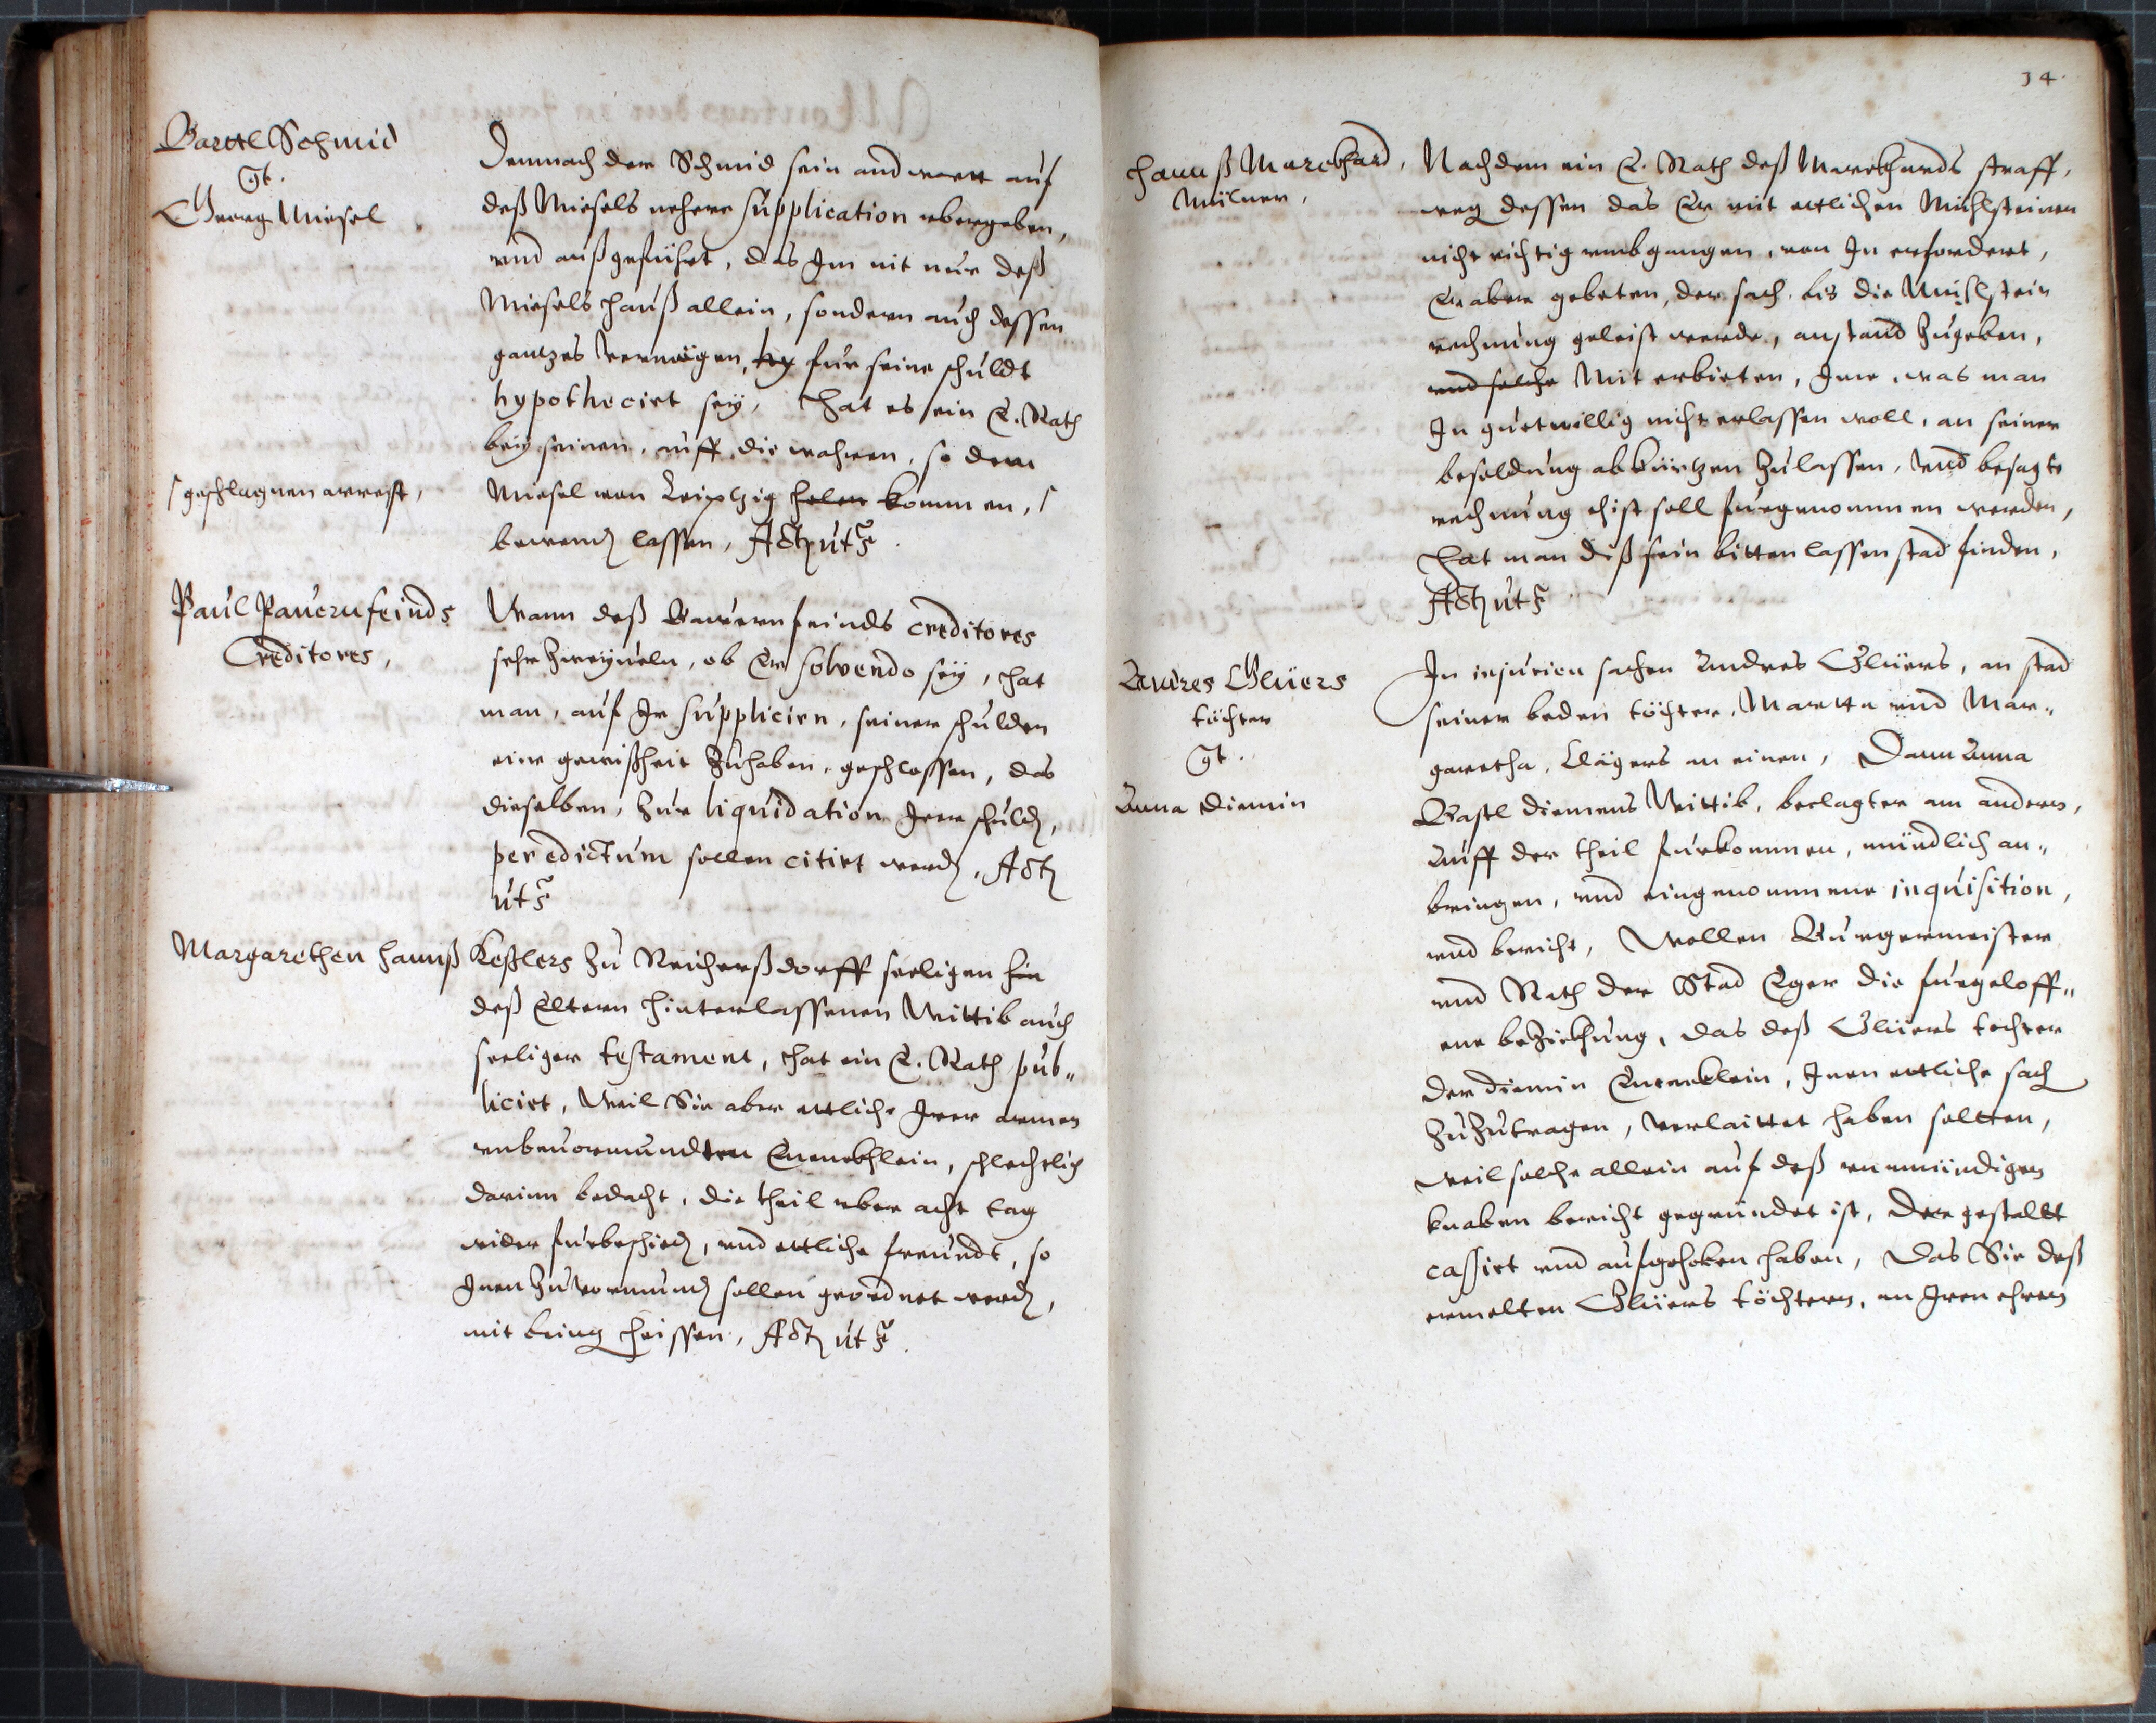 Barttl Schmid
Ct.
Georg Miesel
Demnach der Schmid sein andwortt auf
deß Miesels nehere supplication ubergeben,
und außgeführt, das Im nit nur deß
Miesels Hauß allein, sondern auch dessen
gantzes Vermögen, hy fur seine schuldt
hypothecirt seÿ, Hat es ein E. Rath
beÿ seinen, uff die wahren, so dem
Miesel von Leiptzig kommen, /
/ geschlagnen arrest,
bewend lassen, Act ut s.
Paul Pauernfeinds
Creditores,
Wann deß Bauernfeinds creditores
sehr Zweÿueln, ob Er solvendo seÿ, hat
man, auf Ir supplicirn, seiner schulden
eine gewißheit Zuhaben, geschlossen, das
dieselben, Zur liquidation Irer schuld,
per edictum sollen citirt werd, Act
ut s
Margarethen Hannß Keßlers Zu Reicherßdorff seeligen hin
deß Eltern hinterlassenen Wittib auch
seeliger testament, hat ein E. Rath pub„
licirt, Weil Sie aber ettliche Irer armen
unbeuormundten Enenckhlein, schlechtlich
darinn bedacht, die theil uber acht tag
wider furbeschied, und ettliche freundt, so
Inen Zu Vormund sollen geordnet werd,
mit bring heissen, Act ut s.
14
Hannß Marckhard,
Mülner,
Nachdem ein E. Rath deß Marckhards straff,
weg dessen das Er mit ettlichen Mühlsteinen
nicht richtig umbgangen, von In erfordert,
Er aber gebeten, der sach, bis die Mühlstein
rechnung geleist werde, anstand Zugeben,
und solche Mit erbieten, Ime, was man
In guetwillig nicht erlassen woll, an seiner
besoldung abkürtzen Zulassen, Und besagte
rechnung ehist soll furgenommen werden,
Hat man diß sein bitten lassen stad finden,
Act ut s
Andres Glüers
töchter
Ct.
Anna Diemin
In injurien sachen Andres Glüers, an stad
seiner beden töchter, Martta und Mar„
garetha, Clägers an einen, Dann Anna
Bastl Diemens Wittib, beclagter am andern,
Auff der theil furkommen, mündlich an„
bringen, und eingenommene inquisition,
und bericht, Wollen Burgermeister
und Rath der Stad Eger die furgeloff„
ene beZichung, das deß Glüers tochter
der Diemin Enencklein, Inen ettliche sach
ZuZutragen, Verlaittet haben soltten,
weil solche allein auf deß unmündigen
knaben bericht gegründet ist, Dergestallt
cassirt und aufgehoben haben, Das Sie deß
ermelten Glüers töchtern, an Iren ehren